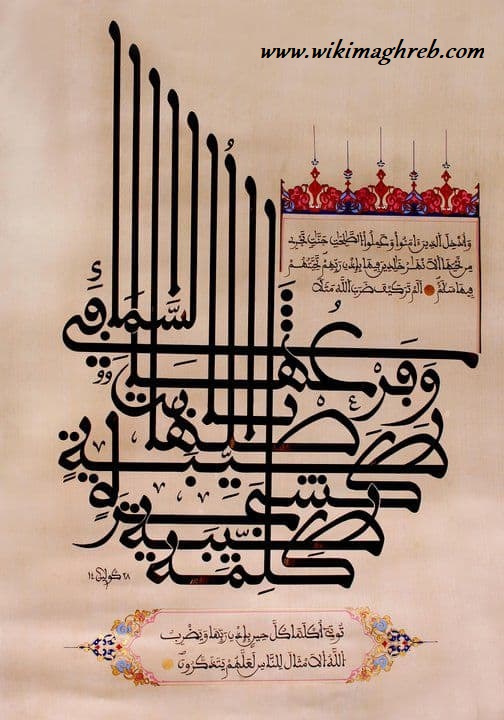 www.wikimaghreb.com
وأدخل الذين ءامنوا وعملوا الصالحات جنات تجري
من تحتها الانهار خالدين فيها بإذن ربهم تحيتهم
فيها سلام الم تر كيف ضرب الله مثلا
كلمة طيبة
كشجرة طيبة
أصلها ثابت
وفرعها في السماء
توتي أكلها كل حين بإذن ربها ويضرب
الله الامثال للناس لعلهم يتذكرون